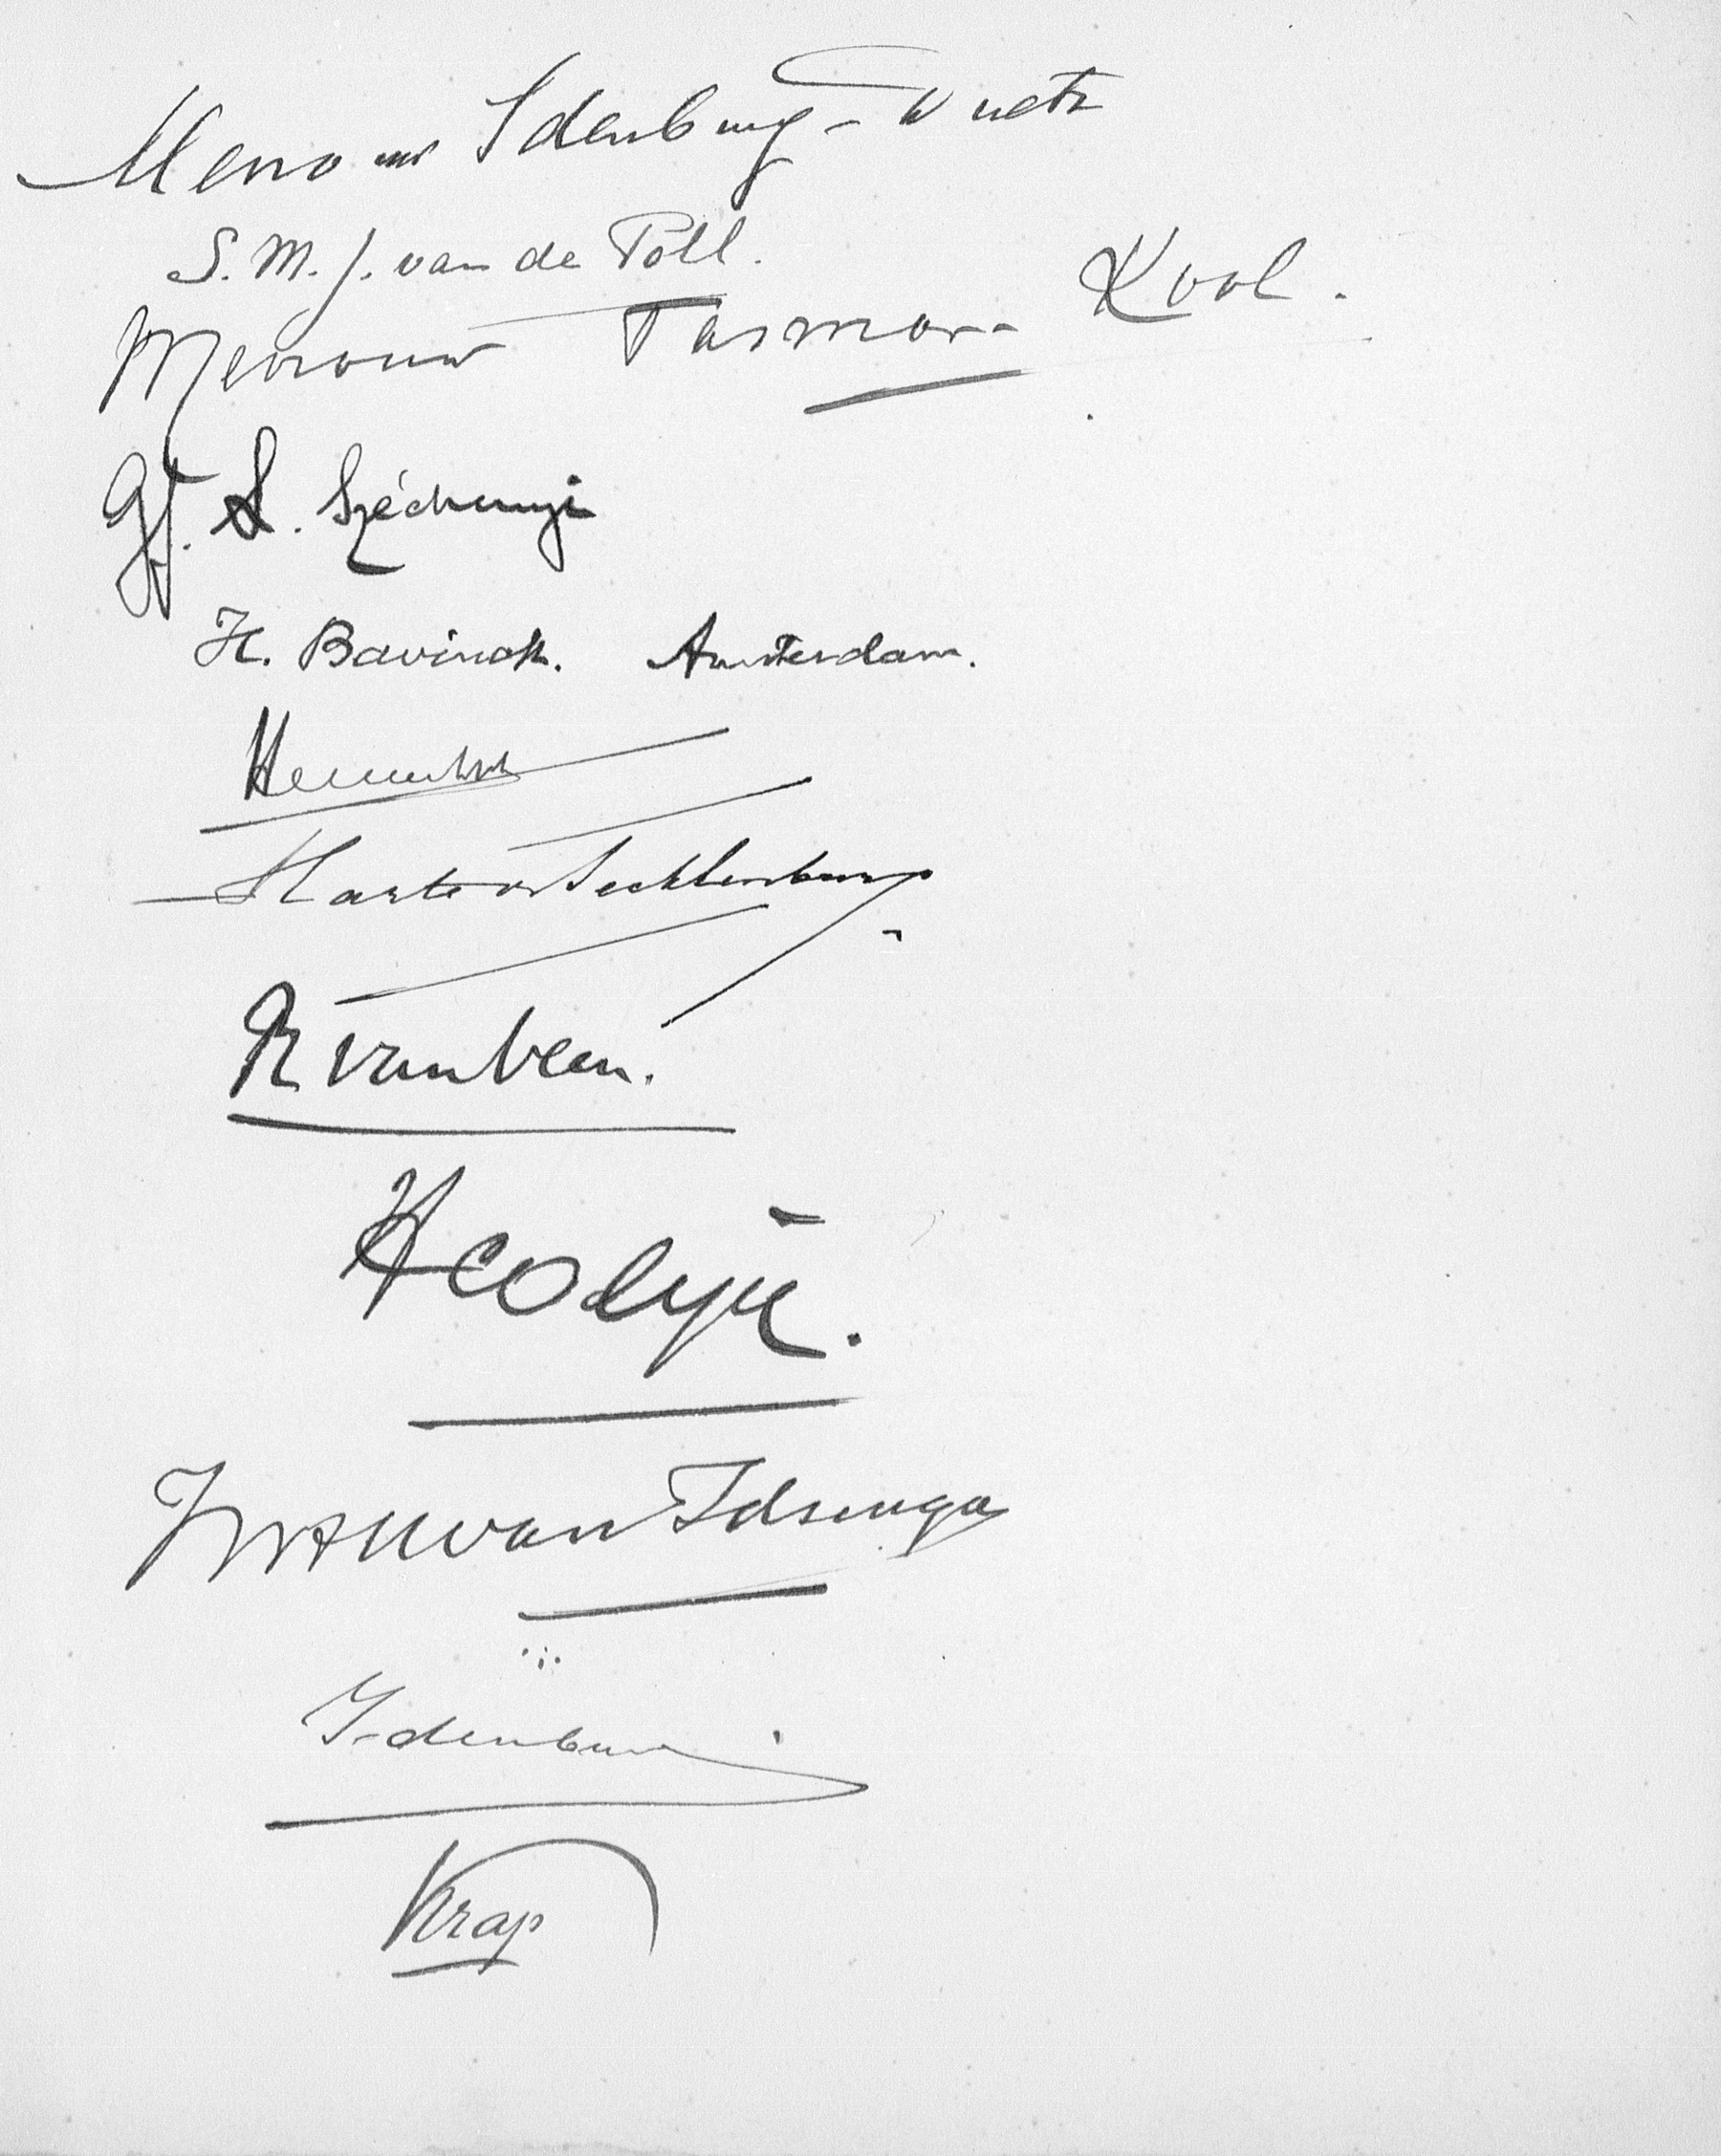 Mevrouw Idenburg-Duetz
S. M. J. van de Poll.
Mevrouw Tasman Kool.
Gf. L. Széchenyi
H. Bavinck. Amsterdam.
Harte v Tecklenburg
R van Veen.
H Colijn.
van Idsinga
Idenburg
Krap